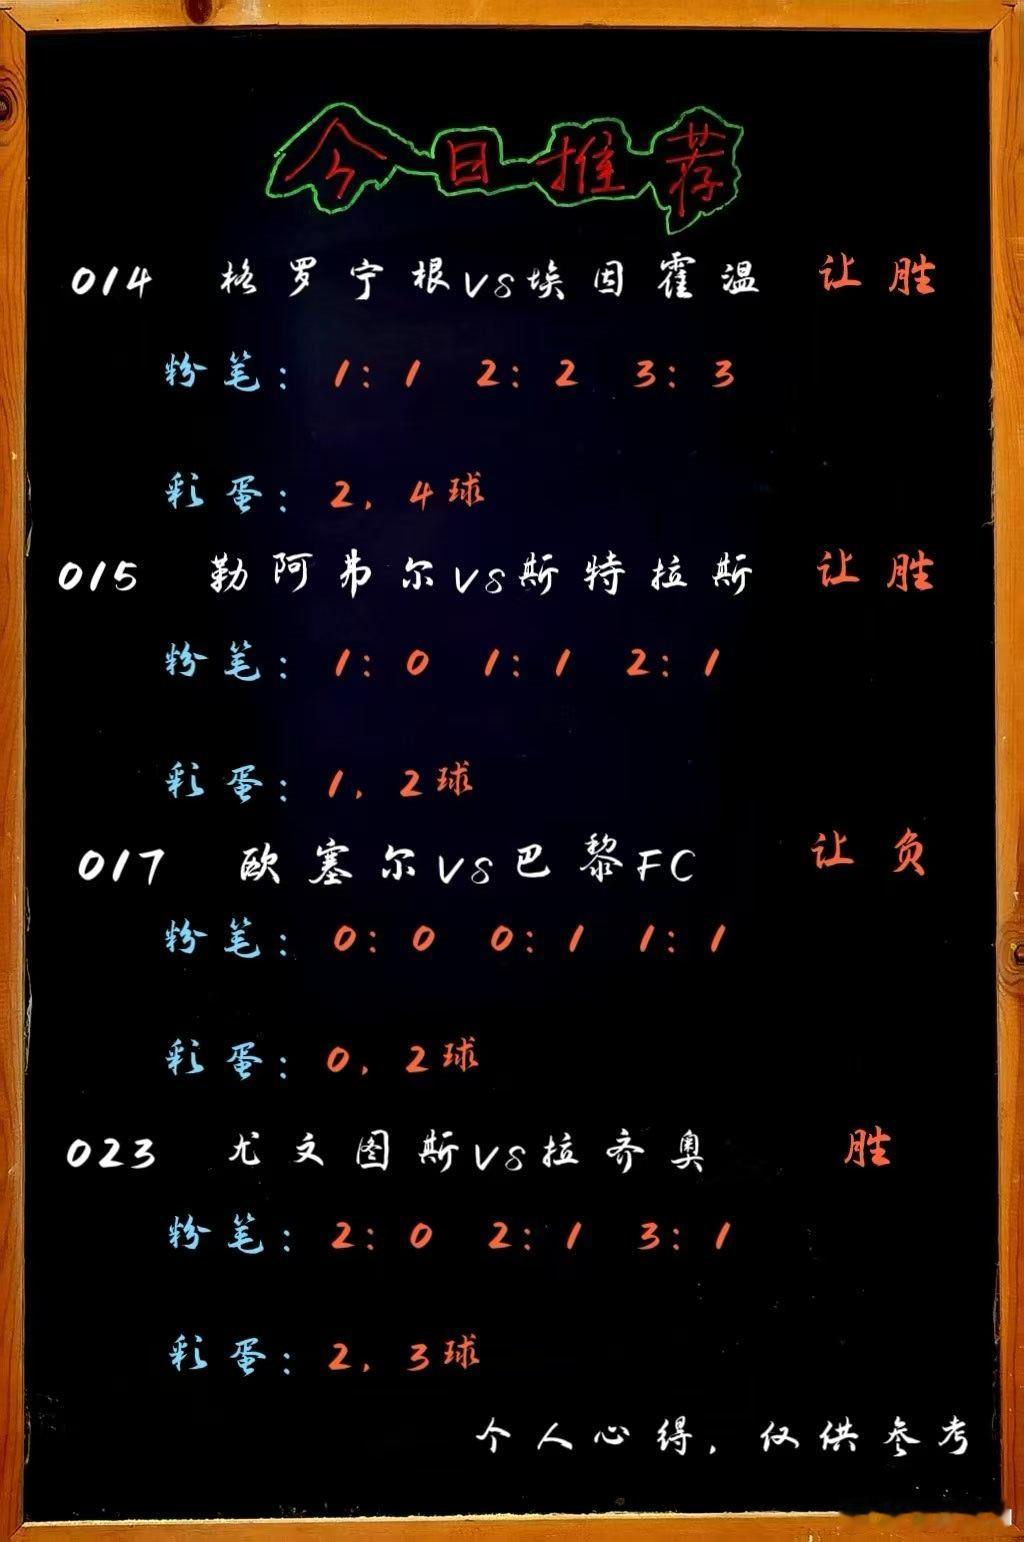 今日推荐
014 格罗宁根VS埃因霍温 让胜
粉笔: 1:1 2:2 3:3
彩蛋: 2,4球
015 勒阿弗尔VS斯特拉斯 让胜
粉笔: 1:0 1:1 2:1
彩蛋: 1,2球
017 欧塞尔VS巴黎FC 让负
粉笔: 0:0 0:1 1:1
彩蛋: 0,2球
023 尤文图斯VS拉齐奥 胜
粉笔: 2:0 2:1 3:1
彩蛋: 2,3球
个人心得,仅供参考